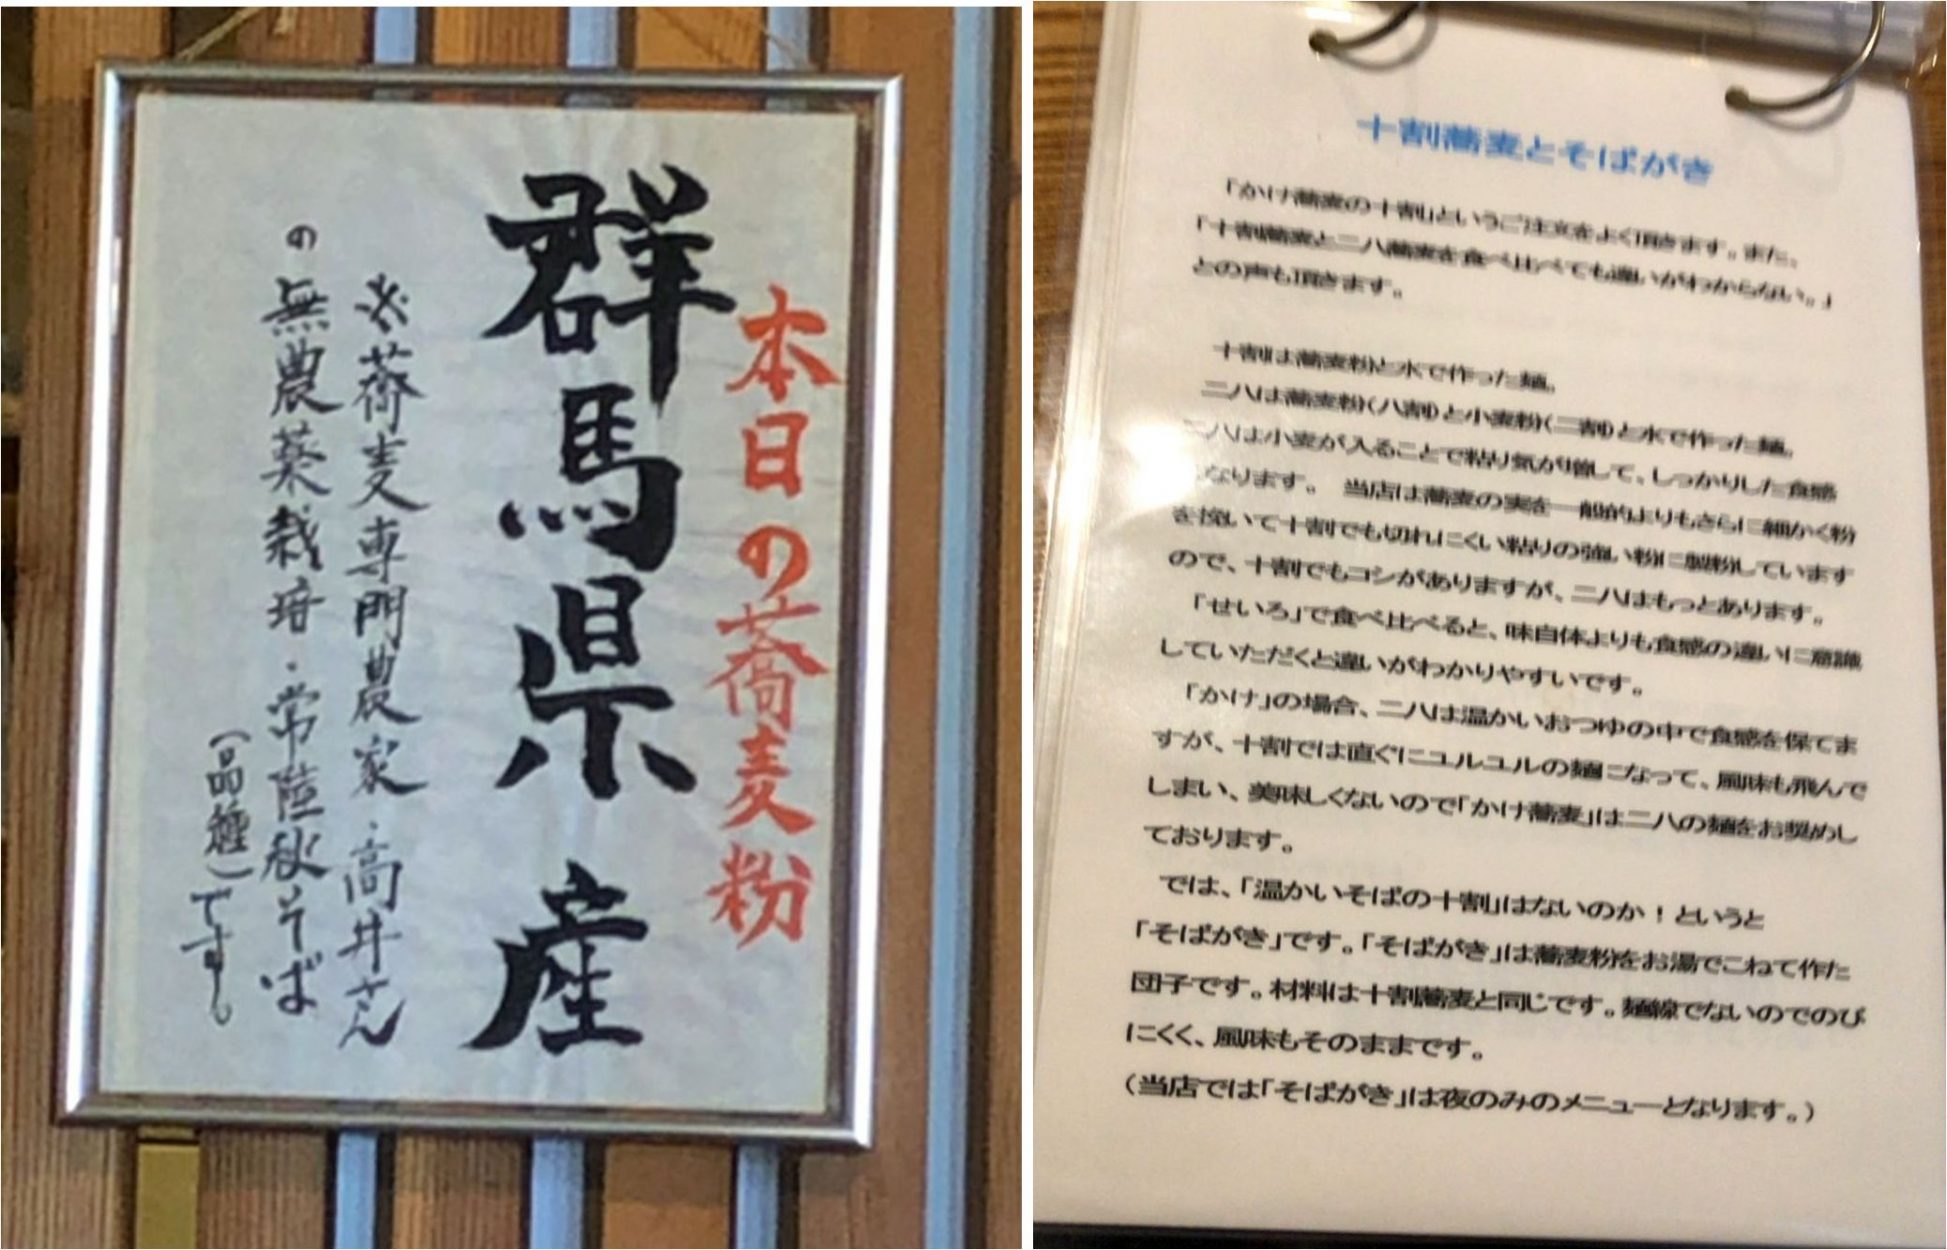 本日の蕎麦粉
群馬県産
※蕎麦専門農家・高井さん
の無農薬栽培・常陸秋そば
(品種)です。
十割蕎麦とそばがき
「かけ蕎麦の十割」というご注文をよく頂きます。また、
「十割蕎麦と二八蕎麦を食べ比べても違いがわからない。」
との声も頂きます。
十割は蕎麦粉と水で作った麺。
二八は蕎麦粉(八割)と小麦粉(二割)と水で作った麺。
二八は小麦が入ることで粘り気が増して、しっかりした食感
になります。 当店は蕎麦の実を一般的よりもさらに細かく粉
を挽いて十割でも切れにくい粘りの強い粉に製粉しています
ので、十割でもコシがありますが、二八はもっとあります。
「せいろ」で食べ比べると、味自体よりも食感の違いに意識
していただくと違いがわかりやすいです。
「かけ」の場合、二八は温かいおつゆの中で食感を保てま
すが、十割では直ぐにユルユルの麺になって、風味も飛んで
しまい、美味しくないので「かけ蕎麦」は二八の麺をお奨めし
ております。
では、「温かいそばの十割」はないのか！というと
「そばがき」です。「そばがき」は蕎麦粉をお湯でこねて作た
団子です。材料は十割蕎麦と同じです。麺線でないのでのび
にくく、風味もそのままです。
(当店では「そばがき」は夜のみのメニューとなります。)